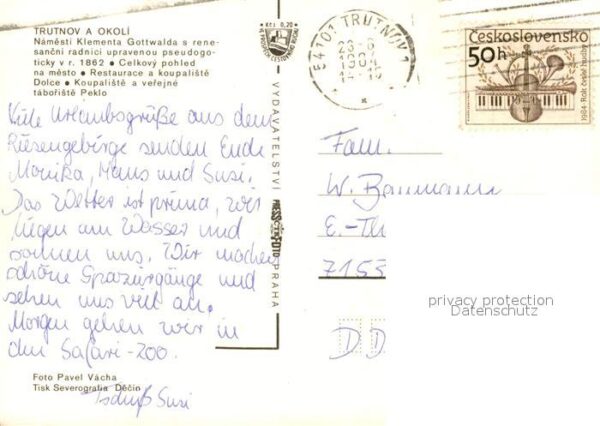 TRUTNOV A OKOLÍ
Náměstí Klementa Gottwalda s rene-
sanční radnicí upravenou pseudogo-
ticky v r. 1862 • Celkový pohled
na město • Restaurace a koupaliště
Dolce • Koupaliště a veřejné
tábořiště Peklo
Viele Urlaubsgrüße aus dem
Riesengebirge senden Euch
Monika, Hans und Susi.
Das Wetter ist prima, wir
liegen am Wasser und
sonnen uns. Wir machen
schöne Spaziergänge und
sehen uns viel an.
Morgen gehen wir in
den Safari-Zoo.
Tschüß Susi
Foto Pavel Vácha
Tisk Severografia Děčín
Kčs 0,20
VYDAVATELSTVÍ
PRESSFOTO
PRAHA
54101 TRUTNOV 1
Československo
50h
1984 · Rok české hudby
Fam.
W. Baumann
E.-Th
7153
DD
privacy protection
Datenschutz